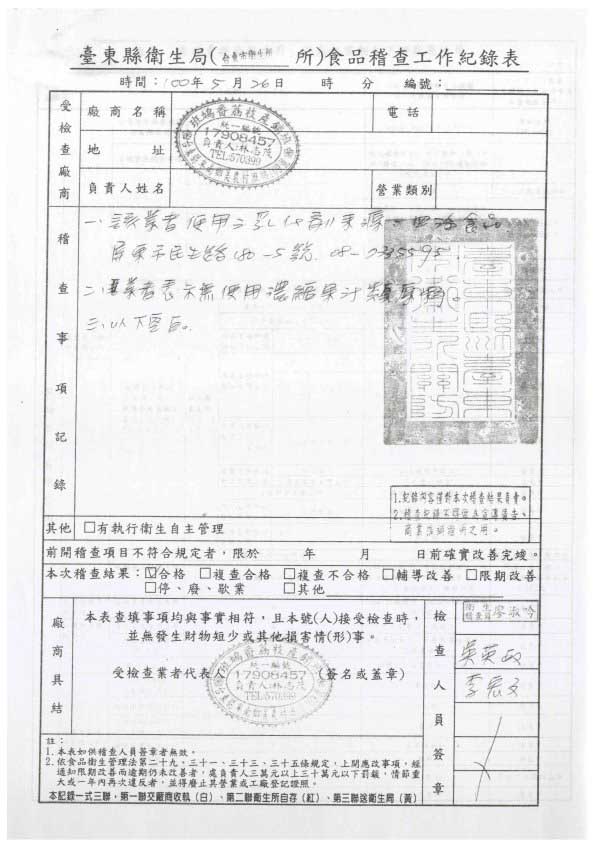 臺東縣衛生局(臺東市衛生所 所)食品稽查工作紀錄表
時間:100年5月26日 時 分 編號:
受檢查廠商
廠商名稱
電話
地址
負責人姓名
營業類別
統一編號
17908457
負責人:林志茂
TEL:570399
稽查事項記錄
一、該業者使用之乳化劑來源
屏東市民生路180-5號.
二、業者表示無使用濃縮果汁類原料。
三、以下空白。
1.記錄內容僅對本次稽查結果負責。
2.稽查紀錄不得做為宣傳廣告、
商業推銷證明之用。
其他 □有執行衛生自主管理
前開稽查項目不符合規定者,限於 年 月 日前確實改善完竣。
本次稽查結果:☑合格 □複查合格 □複查不合格 □輔導改善 □限期改善
□停、廢、歇業 □其他
廠商具結
本表查填事項均與事實相符,且本號(人)接受檢查時,
並無發生財物短少或其他損害情(形)事。
受檢查業者代表人 (簽名或蓋章)
統一編號
17908457
負責人:林志茂
TEL:570399
檢查人員簽章
衛生稽查員 廖淑吟
註:
1.本表如供稽查人員簽章者無效。
2.依食品衛生管理法第二十九、三十一、三十三、三十五條規定,上開應改事項,經
通知限期改善而逾期仍未改善者,處負責人三萬元以上三十萬元以下罰鍰,情節重
大或一年內再次違反者,並得廢止其營業或工廠登記證照。
本記錄一式三聯,第一聯交廠商收執(白)、第二聯衛生所自存(紅)、第三聯送衛生局(黃)